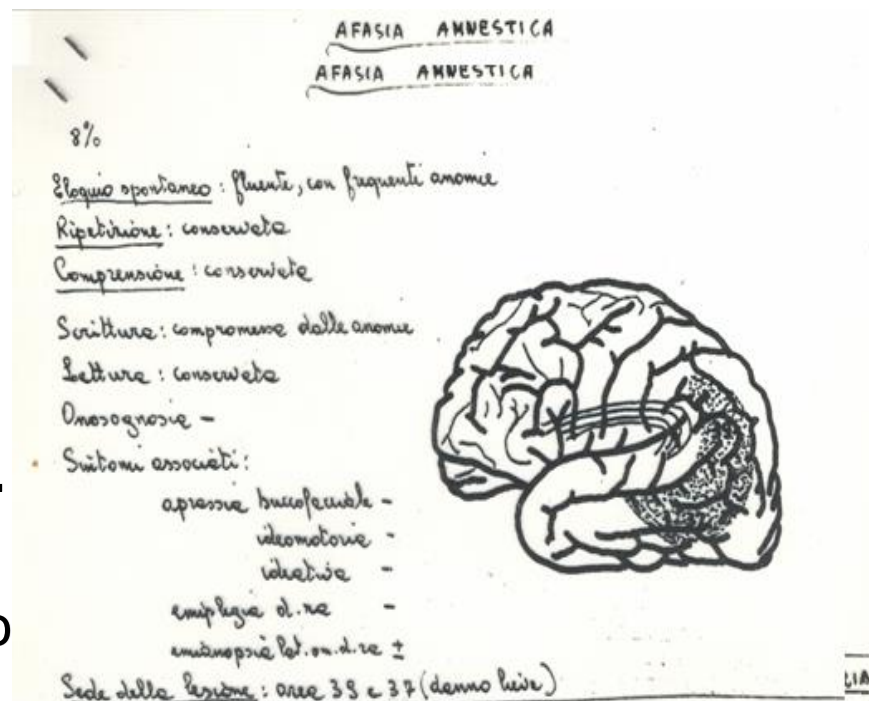 AFASIA AMNESTICA
AFASIA AMNESTICA
8%
Eloquio spontaneo : fluente, con frequenti anomie
Ripetizione : conservata
Comprensione : conservata
Scrittura : compromessa dalle anomie
Lettura : conservata
Anosognosia -
Sintomi associati :
aprassia buccofacciale -
ideomotoria -
ideativa -
emiplegia d.ra -
emianopsia lat. om. d. ra ±
Sede della lesione : area 39 e 37 (danno lieve)